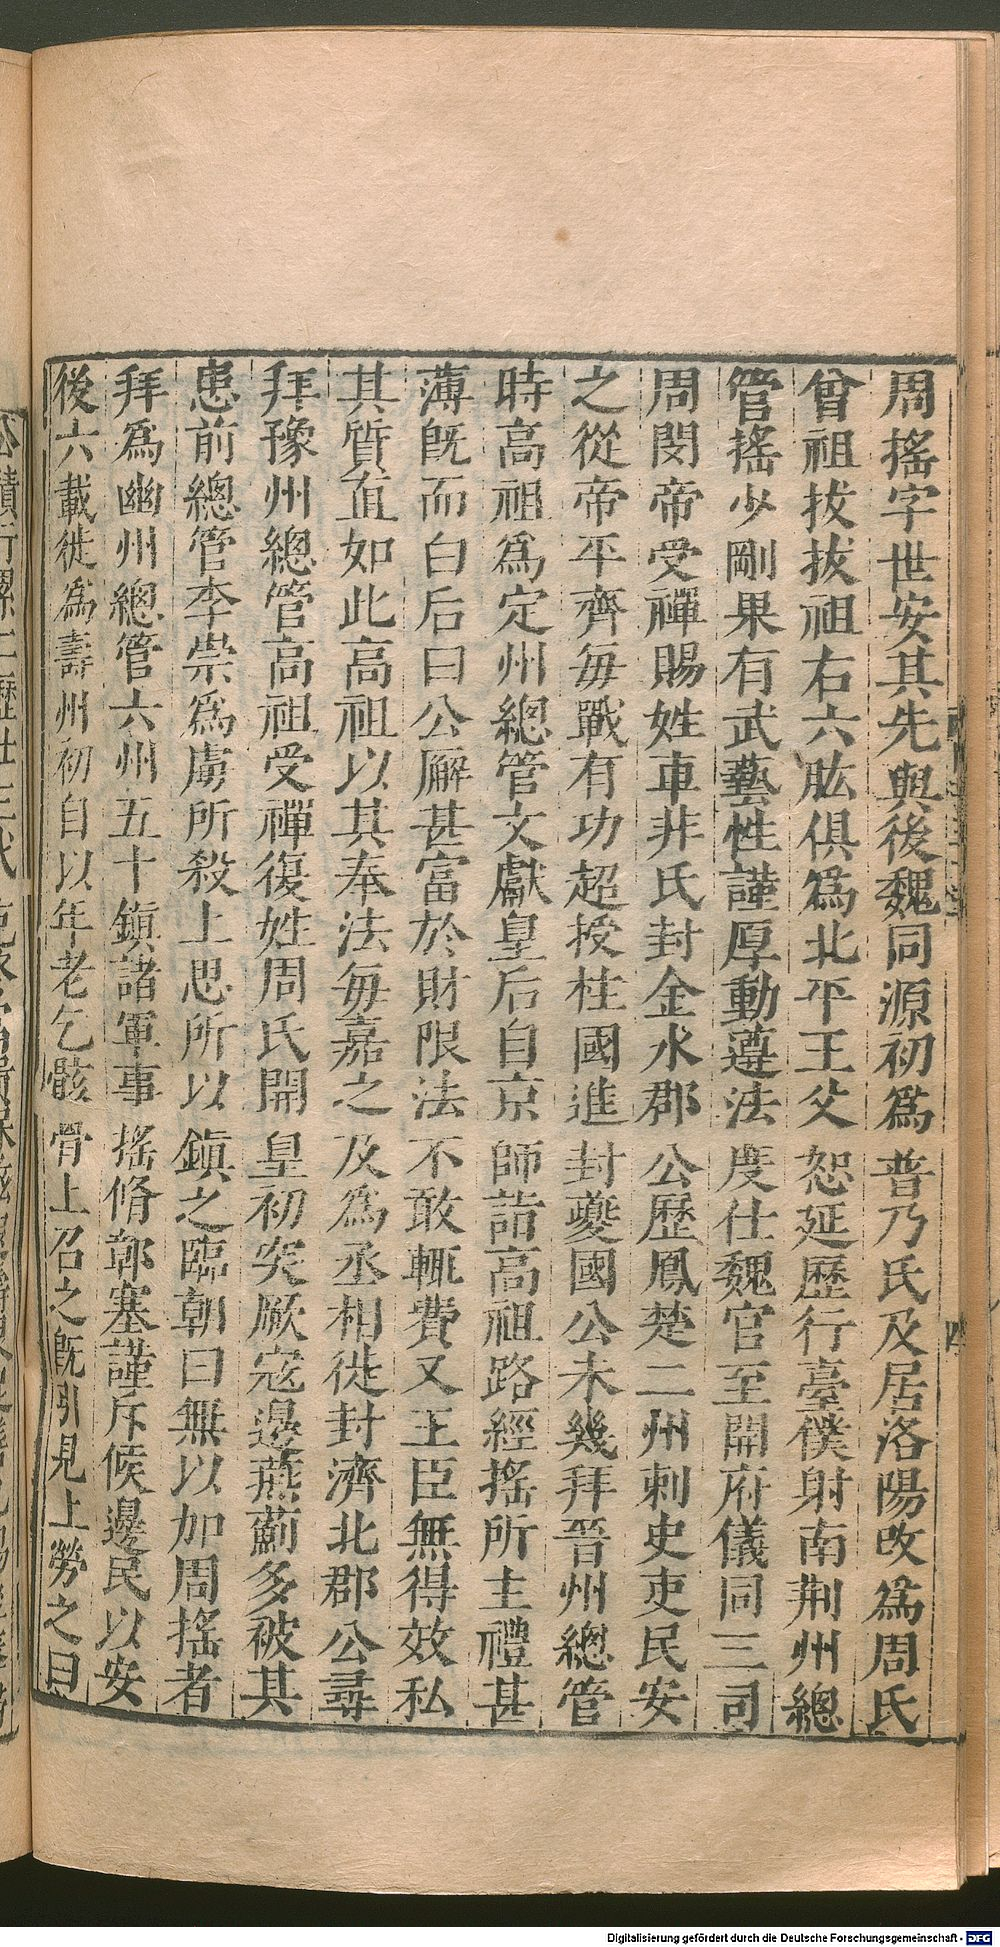 周搖字世安其先與後魏同源初爲普乃氏及居洛陽改爲周氏
曾祖拔拔祖右六肱俱爲北平王父恕延歷行臺僕射南荆州總
管搖少剛果有武藝性謹厚動遵法度仕魏官至開府儀同三司
周閔帝受禪賜姓車非氏封金水郡公歷鳳楚二州刺史吏民安
之從帝平齊每戰有功超授柱國進封夔國公未幾拜晉州總管
時高祖爲定州總管文獻皇后自京師詣高祖路經搖所主禮甚
薄旣而白后曰公廨甚富於財限法不敢輒費又王臣無得效私
其質直如此高祖以其奉法每嘉之及爲丞相徙封濟北郡公尋
拜豫州總管高祖受禪復姓周氏開皇初突厥寇邊燕薊多被其
患前總管李崇爲虜所殺上思所以鎭之臨朝曰無以加周搖者
拜爲幽州總管六州五十鎭諸軍事搖脩鄣塞謹斥候邊民以安
後六載徙爲壽州初自以年老乞骸骨上召之旣引見上勞之曰
Digitalisierung gefördert durch die Deutsche Forschungsgemeinschaft - DFG